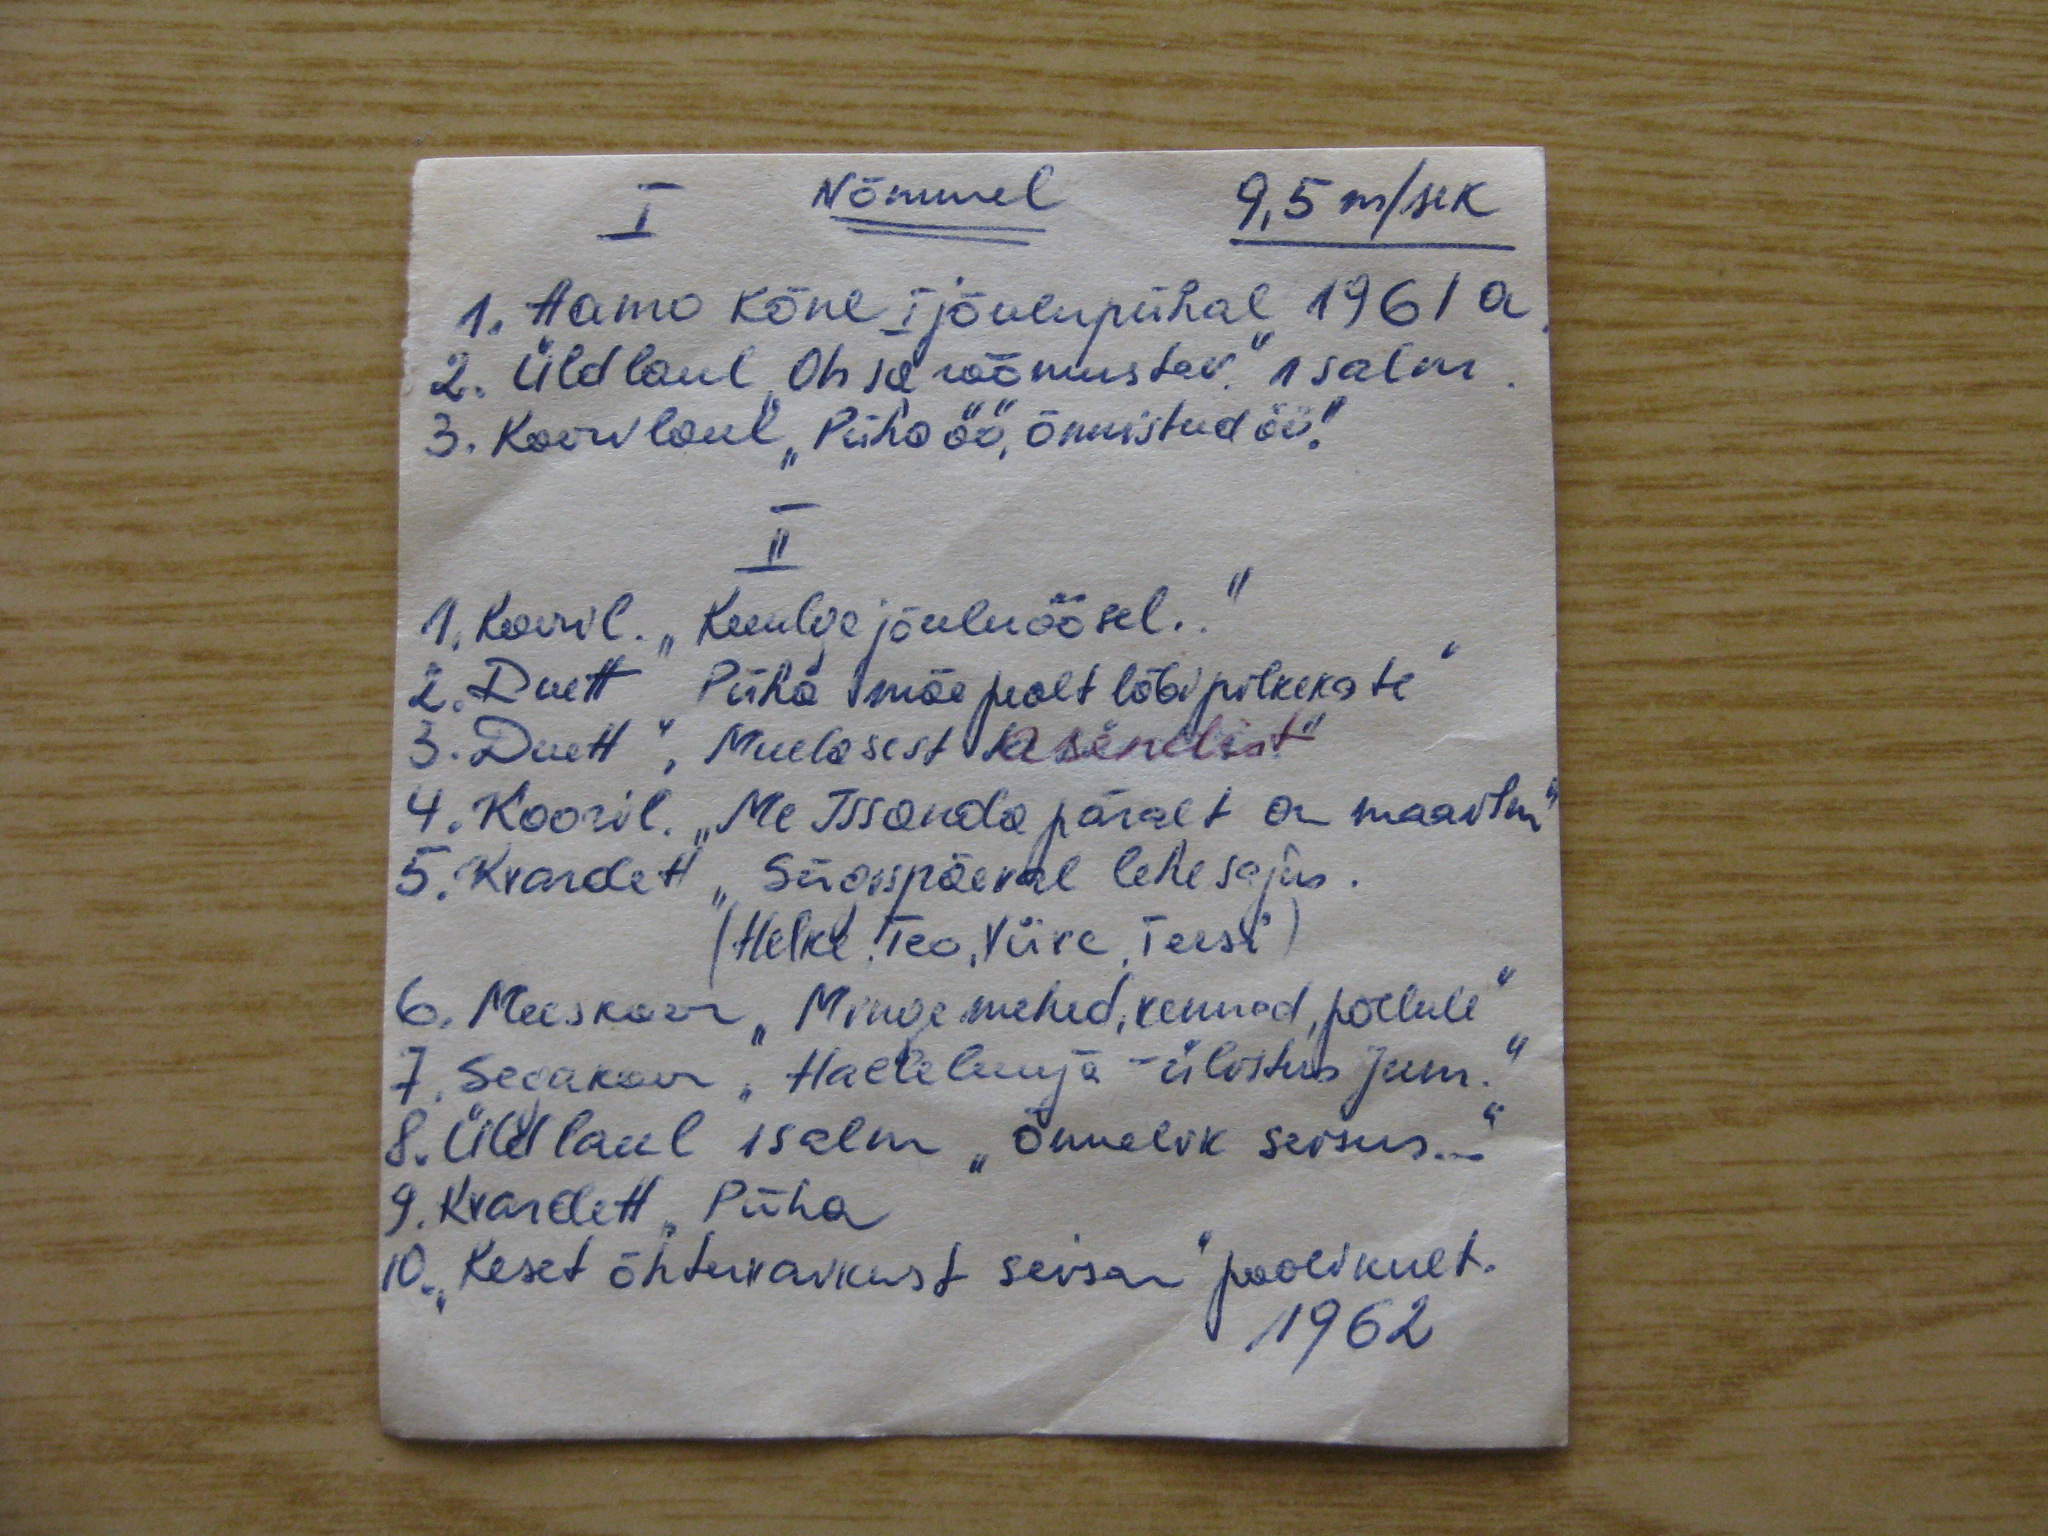 I Nõmmel 9,5 m/sek
1. Hamo kõne I jõulupühal 1961 a.
2. Üldlaul „Oh sa rõõmustav." 1 salm.
3. Koorilaul „Püha öö, õnnistud öö!"
II
1. Kooril. „Kuulge jõuluöösel.."
2. Duett Püha mäe pealt läbi pilkekate"
3. Duett „Muldsest
4. Kooril. „Me Issanda päralt on maailm"
5. Kvardett „Sügispäeval lehesajus.
(Helke, Teo, Viive, Teesi)
6. Meeskoor „Minge mehed, vennad, põllule"
7. Segakoor „Halleluuja - ülistus Jum."
8. Üldlaul 1 salm „Õnnelik seisus..."
9. Kvardett „Püha
10. „Keset õhtuvaikust seisan" poolikult.
1962